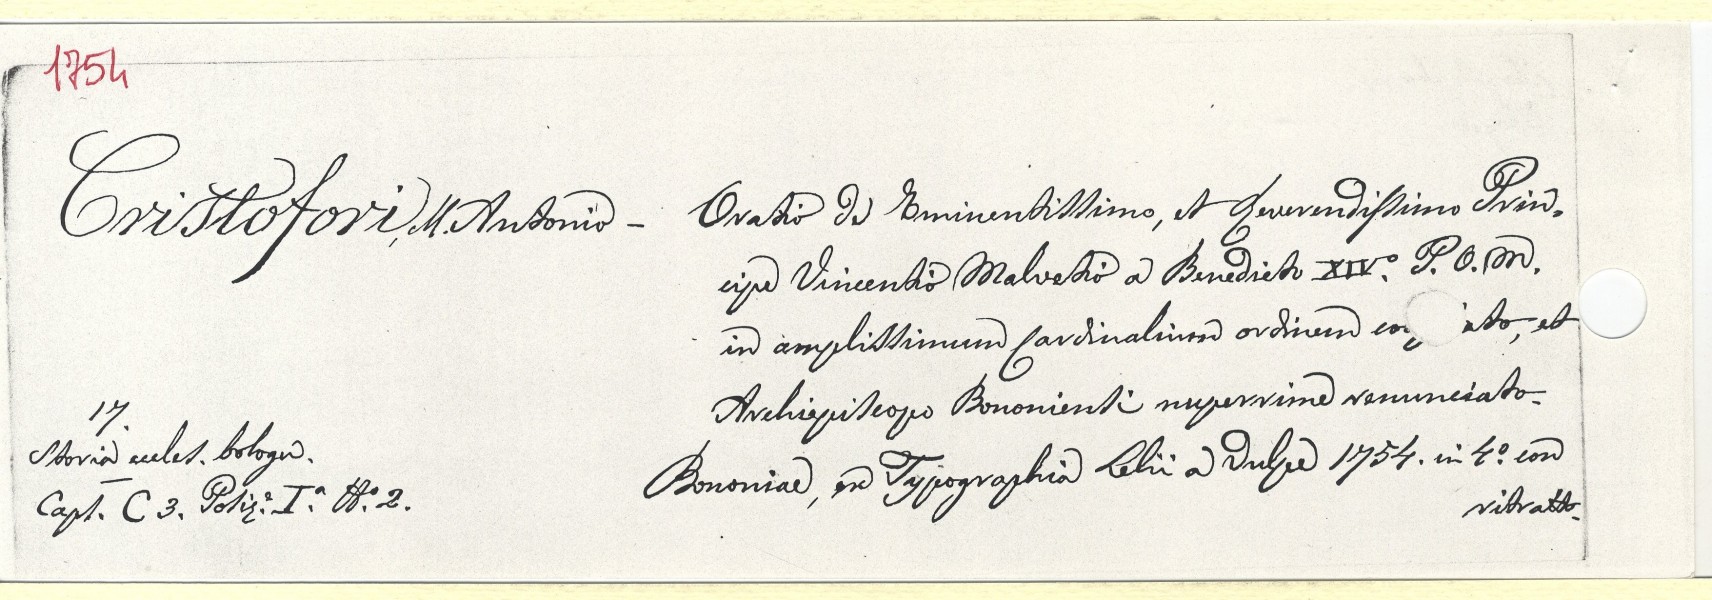 1754
Cristofori, M. Antonio - Oratio de Eminentissimo, et Reverendissimo Prin-
cipe Vincentio Malvetio a Benedicto XIV.º P. O. M.
in amplissimum Cardinalium ordinem et
Archiepiscopo Bononiensi nuperrime renunciato-
Bononiae, ex Typographia Lelii a Vulpe 1754. in 4.º con
ritratto-
17.
Storia eccles. bologn.
Capt. C 3. Poliz.ª I.ª N.º 2.